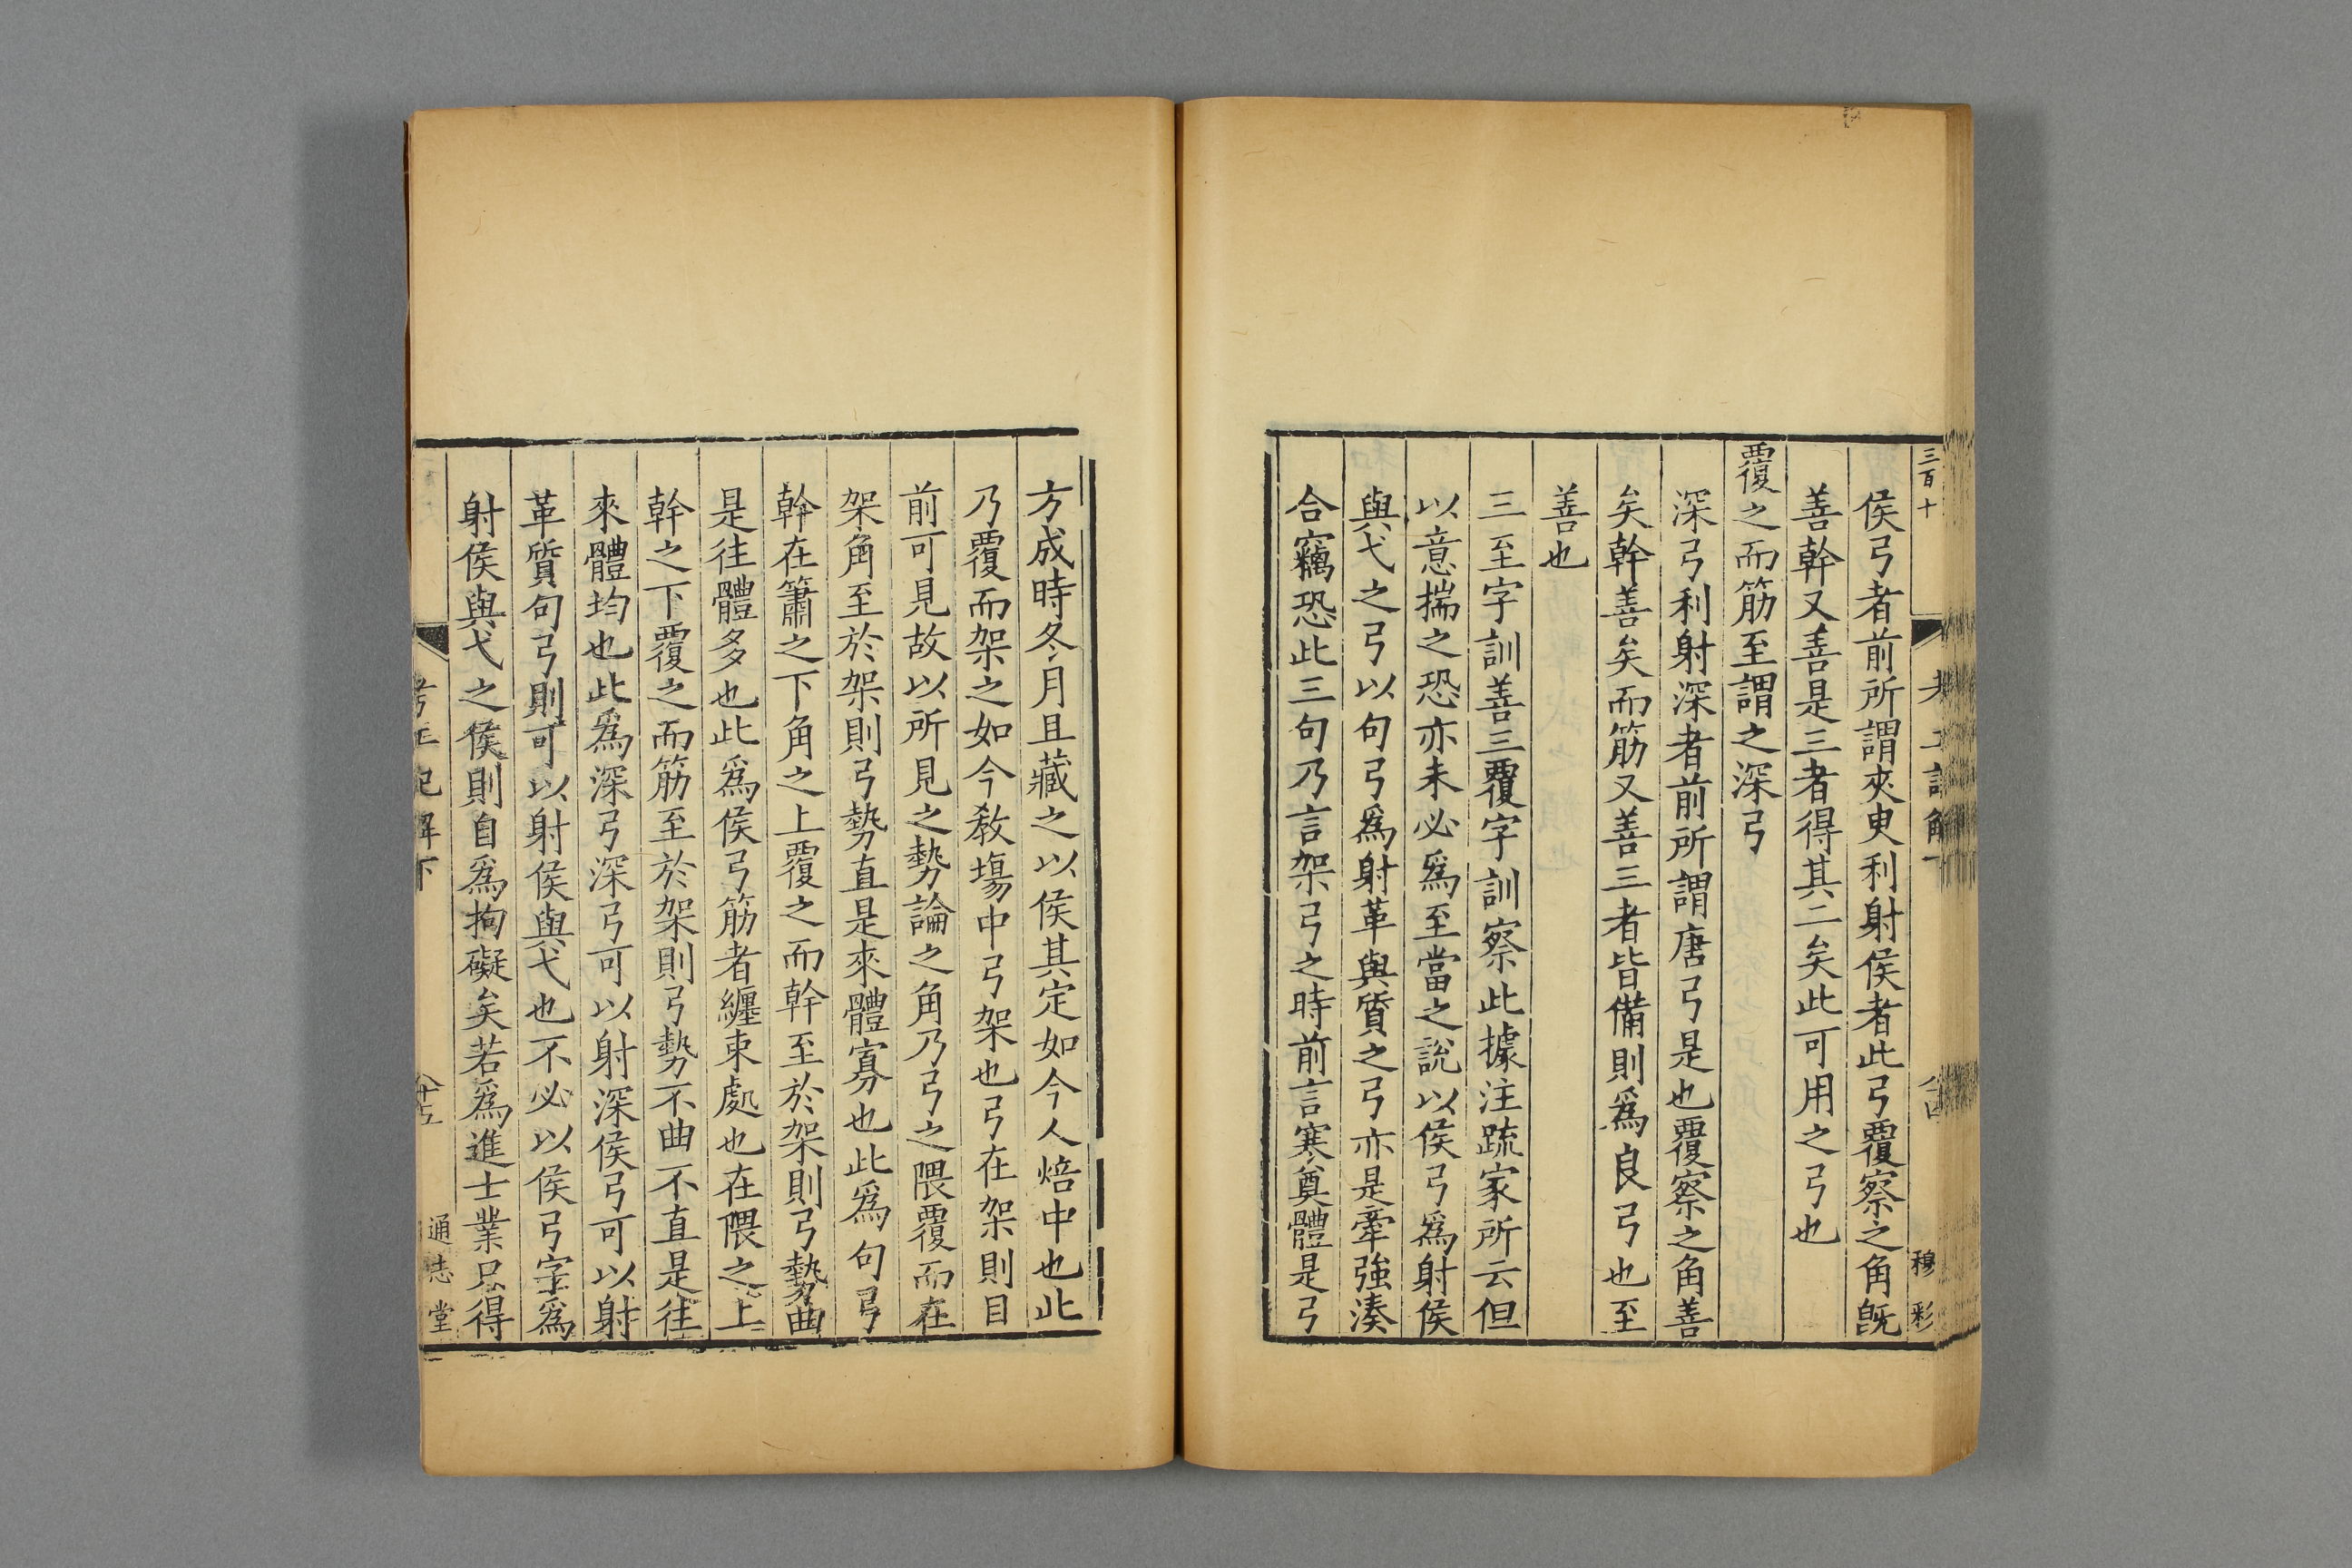 三百十
考工記解下
穆彩
侯弓者前所謂夾臾利射侯者此弓覆察之角既
善幹又善是三者得其二矣此可用之弓也
覆之而筋至謂之深弓
深弓利射深者前所謂唐弓是也覆察之角善
矣幹善矣而筋又善三者皆備則爲良弓也至
善也
三至字訓善三覆字訓察此據注疏家所云但
以意揣之恐亦未必爲至當之說以侯弓爲射侯
與弋之弓以句弓爲射革與質之弓亦是牽強湊
合竊恐此三句乃言架弓之時前言寒奠體是弓
方成時冬月且藏之以俟其定如今人焙中也此
乃覆而架之如今教場中弓架也弓在架則目
前可見故以所見之勢論之角乃弓之隈覆而在
架角至於架則弓勢直是來體寡也此爲句弓
幹在簫之下角之上覆之而幹至於架則弓勢曲
是往體多也此爲侯弓筋者纏束處也在隈之上
幹之下覆之而筋至於架則弓勢不曲不直是往
來體均也此爲深弓深弓可以射深侯弓可以射
革質句弓則可以射侯與弋也不必以侯弓字爲
射侯與弋之侯則自爲拘礙矣若爲進士業只得
考工記解下
八十五
通志堂